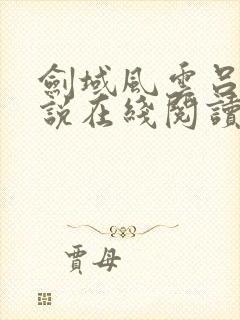 劍域風雲呂
說在綫閱讀
賈母